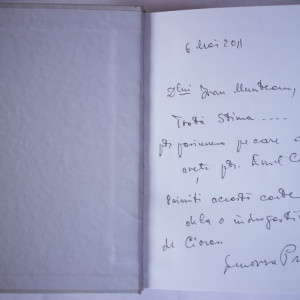 6 Mai 2011
Dlui Ioan Munteanu,
Toată Stima ....
ptr pasiunea pe care a
aveți ptr. Emil C
Primiți această carte
de la o îndrăgostit
de Cioran